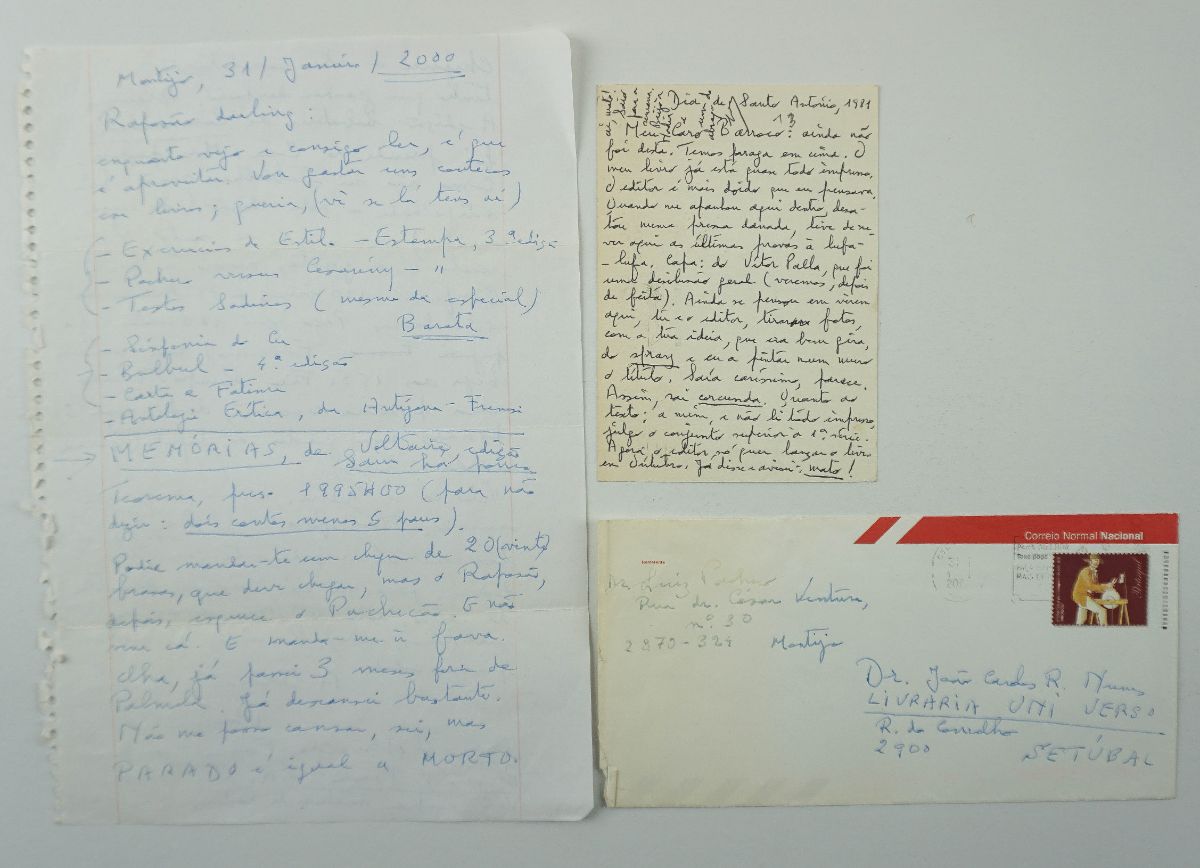 Montijo, 31/ Janeiro / 2000
Raposão darling:
enquanto vejo e consigo ler, é que
é aproveitar. Vou gastar uns contecos
em livros; queria, (vê se lá tens aí)
- Exercícios de Estilo - Estampa, 3ª edição
- Pacheco versus Cesariny - "
- Textos Sadinos ( mesmo da especial)
Barata
- Sinfonia do Cu
- Bulbul - 4ª edição
- Carta a Fátima
- Antologia Erótica, da Antígona - Frenesi
→ MEMÓRIAS, de Voltaire, edição
Saiu há pouco
Teorema, preço 1995$00 (para não
dizer: dois contos menos 5 paus).
Podia mandar-te um cheque de 20 (vinte)
brasas, que deve chegar, mas o Raposão,
depois, esquece o Pachecão. E não
vem cá. E manda-me à fava.
Olha, já passei 3 meses fora de
Palmela. Já descansei bastante.
Não me posso cansar, sei, mas
PARADO é igual a MORTO.
Dia de Santo António, 1981
13
Meu Caro Barroco: ainda não
foi desta. Temos paraga em cima. O
meu livro já está quase todo impresso.
O editor é mais doido que eu pensava.
Quando me apanhou aqui dentro, desa-
tou numa pressa danada, tive de re-
ver aqui as últimas provas à lufa-
-lufa. Capa: do Vitor Palla, que foi
uma desilusão geral (veremos, depois
de feita). Ainda se pensou em virem
aqui, tu e o editor, tirarem fotos,
com a tua ideia, que era bem gira,
do spray e eu a pintar num muro
o título. Saía caríssimo, parece.
Assim, sai corcunda. Quanto ao
texto: a mim, e não li tudo impresso,
julgo o conjunto superior à 1ª série.
Agora, o editor só quer lançar o livro
em Outubro. Já disse e avisei: mato!
Correio Normal Nacional
Remetente
Portugal
Luiz Pacheco
Rua dr. César Ventura,
nº 30
2870-324 Montijo
Dr. João Carlos R. Nunes
LIVRARIA UNI VERSO
R. do Concelho
2900 SETÚBAL